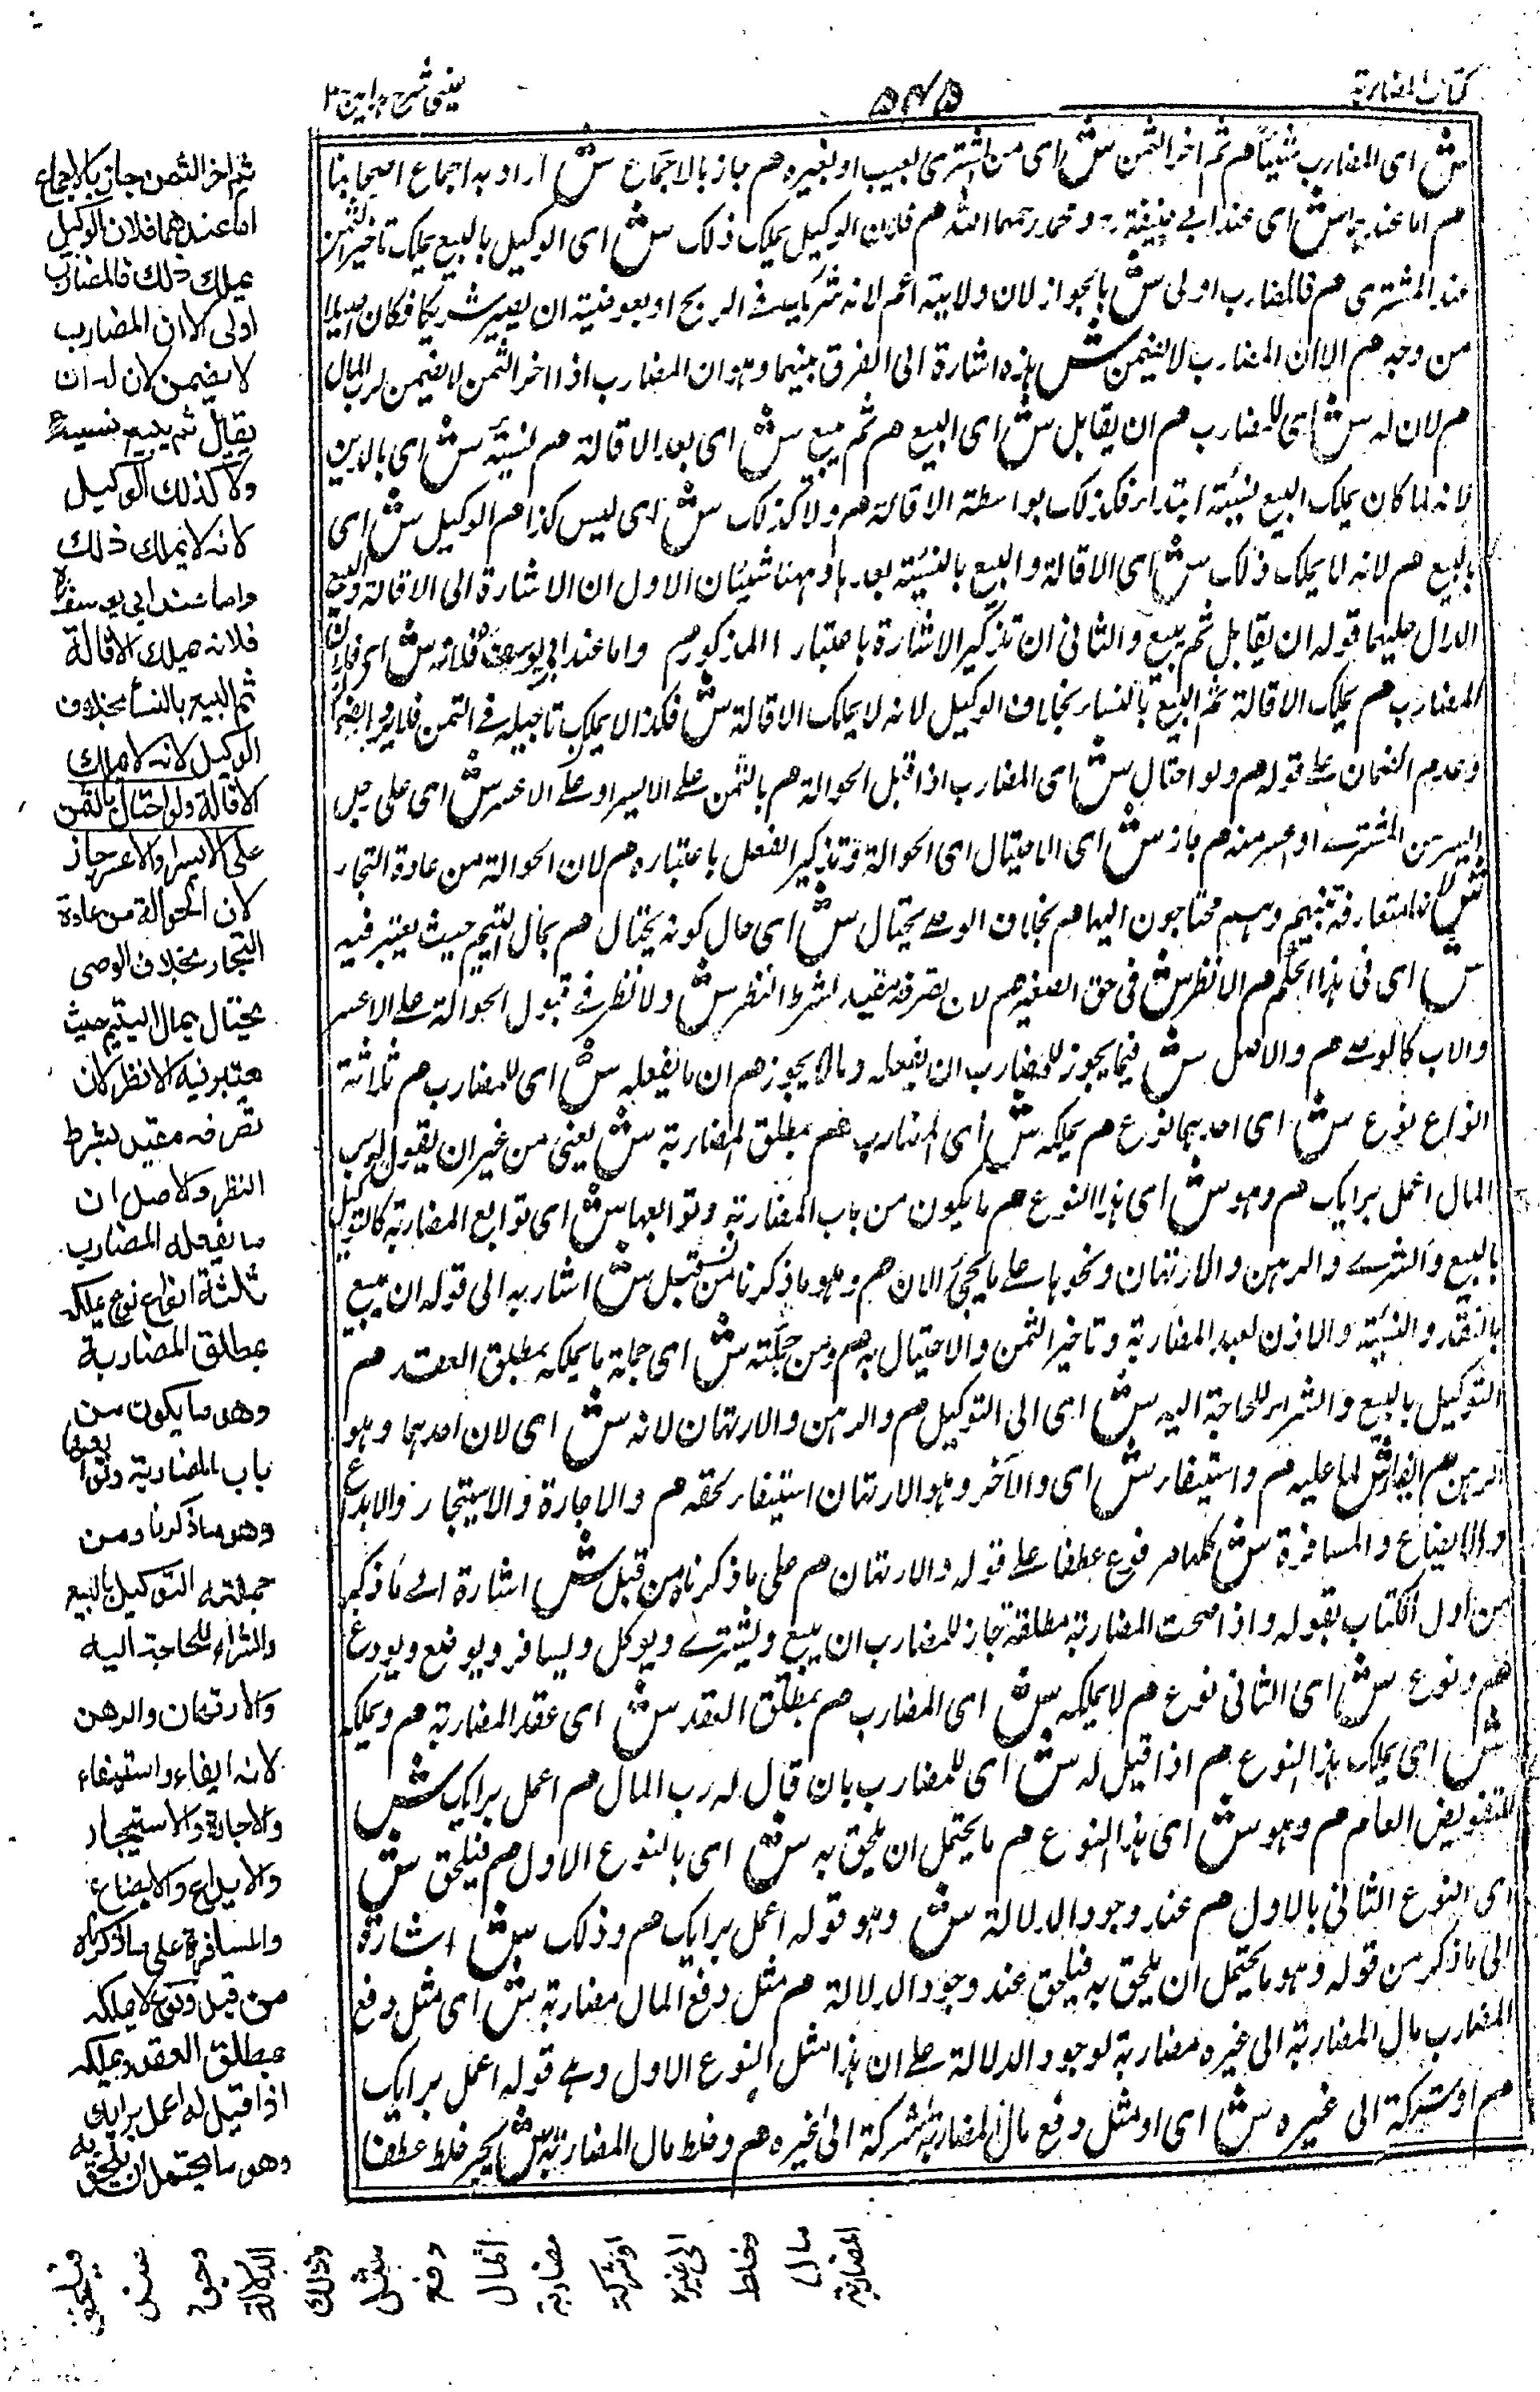 كتاب المضاربة
٥٤٥
عينى شرح هداية ج ٣
ش اى المضارب شيئا هم ثم اخر الثمن ش اى من اشترى لعيب او لغيره هم جاز بالاجماع ش اراد به اجماع اصحابنا
هم اما عندهما ش اى عند ابي حنيفة رح و محمد رحمهما الله هم فلان الوكيل يملك ذلك ش اى الوكيل بالبيع يملك تاخير الثمن
عند المشترى هم فالمضارب اولى ش بالجواز لان ولايته اعم لانه شريك في الربح او بعرضية ان يصير شريكا فكان اصيلا
من وجه هم الا ان المضارب لا يضمن ش هذه اشارة الى الفرق بينهما وهو ان المضارب اذا اخر الثمن لا يضمن لرب المال
هم لان له ش اى للمضارب هم ان يقابل ش اى البيع هم ثم يبيع ش اى بعد الاقالة هم نسيئة ش اى بالدين
لانه لما كان يملك البيع نسيئة ابتداء فكذلك بواسطة الاقالة هم ولا كذلك ش اى ليس كذا هم الوكيل ش اى
بالبيع هم لانه لا يملك ذلك ش اى الاقالة والبيع بالنسيئة بعدها و ههنا شيئان الاول ان الاشارة الى الاقالة والبيع
الدال عليهما قوله ان يقابل ثم يبيع والثانى ان تذكير الاشارة باعتبار المذكور هم واما عند ابي يوسف رح فلانه ش اى فلان
المضارب هم يملك الاقالة ثم البيع بالنساء بخلاف الوكيل لانه لا يملك الاقالة ش فكذا لا يملك تاجيله في الثمن
وعدم الضمان على قوله هم ولو احتال ش اى المضارب اذا قبل الحوالة هم بالثمن على الايسر او على الاعسر ش اى على رجل
ايسر من المشترى او اعسر منه هم جاز ش اى الاحتيال اى الحوالة وتذكير الفعل باعتباره هم لان الحوالة من عادة التجار
ش لانها متعارفة بينهم وهم محتاجون اليها هم بخلاف الوصى يحتال ش اى حال كونه يحتال هم بمال اليتيم حيث يعتبر فيه
ش اى فى هذا الحكم هم الانظر ش فى حق الصغير هم لان تصرفه مقيد بشرط النظر ش ولا نظر فى قبول الحوالة على الاعسر
والاب كالوصى هم والاصل ش فيما يجوز للمضارب ان يفعله وما لا يجوز هم ان ما يفعله ش اى للمضارب هم ثلاثة
انواع نوع ش اى احدها نوع هم يملكه ش اى المضارب هم بمطلق المضاربة ش يعنى من غير ان يقول له رب
المال اعمل برايك هم وهو ش اى هذا النوع هم ما يكون من باب المضاربة وتوابعها ش اى توابع المضاربة كالتوكيل
بالبيع والشرى والرهن والارتهان ونحوها على ما يجئ الان هم وهو ما ذكرنا من قبل ش اشار به الى قوله ان يبيع
بالنقد والنسيئة والاذن لعبد المضاربة وتاخير الثمن والاحتيال به هم ومن جملته ش اى جملة ما يملكه بمطلق العقد هم
التوكيل بالبيع والشراء للحاجة اليه ش اى الى التوكيل هم والرهن والارتهان لانه ش اى لان احدهما وهو
الرهن هم ايفاء ش لما عليه هم واستيفاء ش اى والآخر وهو الارتهان استيفاء لحقه هم والاجارة والاستيجار والايداع
والابضاع والمسافرة ش كلها مرفوع عطفا على قوله والارتهان هم على ما ذكرناه من قبل ش اشارة الى ما ذكره
من اول الكتاب بقوله واذا صحت المضاربة مطلقة جاز للمضارب ان يبيع ويشترى ويوكل ويسافر ويبضع ويودع
هم ونوع ش اى الثانى نوع هم لا يملكه ش اى المضارب هم بمطلق العقد ش اى عقد المضاربة هم ويملكه
ش اى يملك هذا النوع هم اذا قيل له ش اى للمضارب بان قال له رب المال هم اعمل برايك ش
للتفويض العام هم وهو ش اى هذا النوع هم ما يحتمل ان يلحق به ش اى بالنوع الاول هم فيلحق ش
اى النوع الثانى بالاول هم عند وجود الدلالة ش وهو قوله اعمل برايك هم وذلك ش اشارة
الى ما ذكر من قوله وهو ما يحتمل ان يلحق به فيلحق عند وجود الدلالة هم مثل دفع المال مضاربة ش اى مثل دفع
المضارب مال المضاربة الى غيره مضاربة لوجود الدلالة على ان هذا مثل النوع الاول وهى قوله اعمل برايك
هم او شركة الى غيره ش اى او مثل دفع مال المضاربة شركة الى غيره هم وخلط مال المضاربة ش بجر خلط عطفا
ثم اخر الثمن جاز بالاجماع
اما عندهما فلان الوكيل
يملك ذلك فالمضارب
اولى الا ان المضارب
لا يضمن لان له ان
يقابل ثم يبيع نسيئة
ولا كذلك الوكيل
لانه لا يملك ذلك
واما عند ابي يوسف رح
فلانه يملك الاقالة
ثم البيع بالنسأ بخلاف
الوكيل لانه لا يملك
الاقالة ولو احتال بالثمن
على الايسر او الاعسر جاز
لان الحوالة من عادة
التجار بخلاف الوصى
يحتال بمال اليتيم حيث
يعتبر فيه الانظر لان
تصرفه مقيد بشرط
النظر والاصل ان
ما يفعله المضارب
ثلثة انواع نوع يملكه
بمطلق المضاربة
وهو ما يكون من
باب المضاربة وتوابعها
وهو ما ذكرنا ومن
جملته التوكيل بالبيع
والشراء للحاجة اليه
والارتهان والرهن
لانه ايفاء واستيفاء
والاجارة والاستيجار
والايداع والابضاع
والمسافرة على ما ذكرناه
من قبل ونوع لا يملكه
بمطلق العقد ويملكه
اذا قيل له اعمل برايك
وهو ما يحتمل ان يلحق به
فيلحق
عند
وجود
الدلالة
وذلك
مثل
دفع
المال
مضاربة
او شركة
الى غيره
وخلط
مال
المضاربة